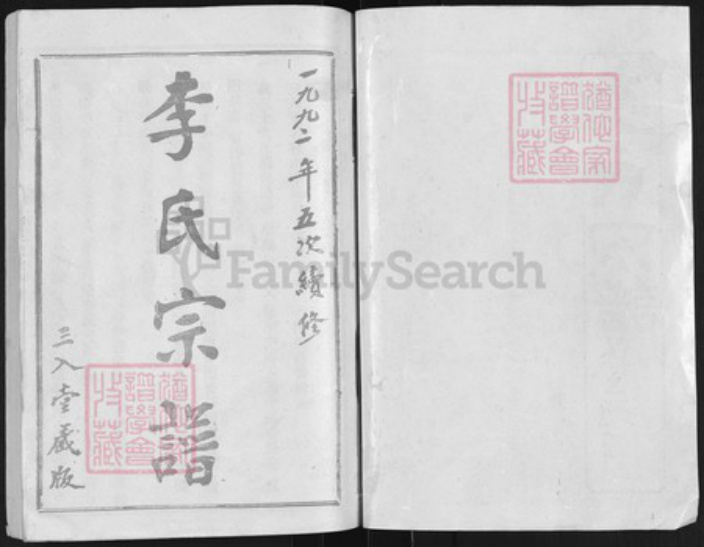 一九九二年五次續修
李氏宗譜
三入堂藏版
猶他家譜學會收藏
猶他家譜學會收藏
FamilySearch